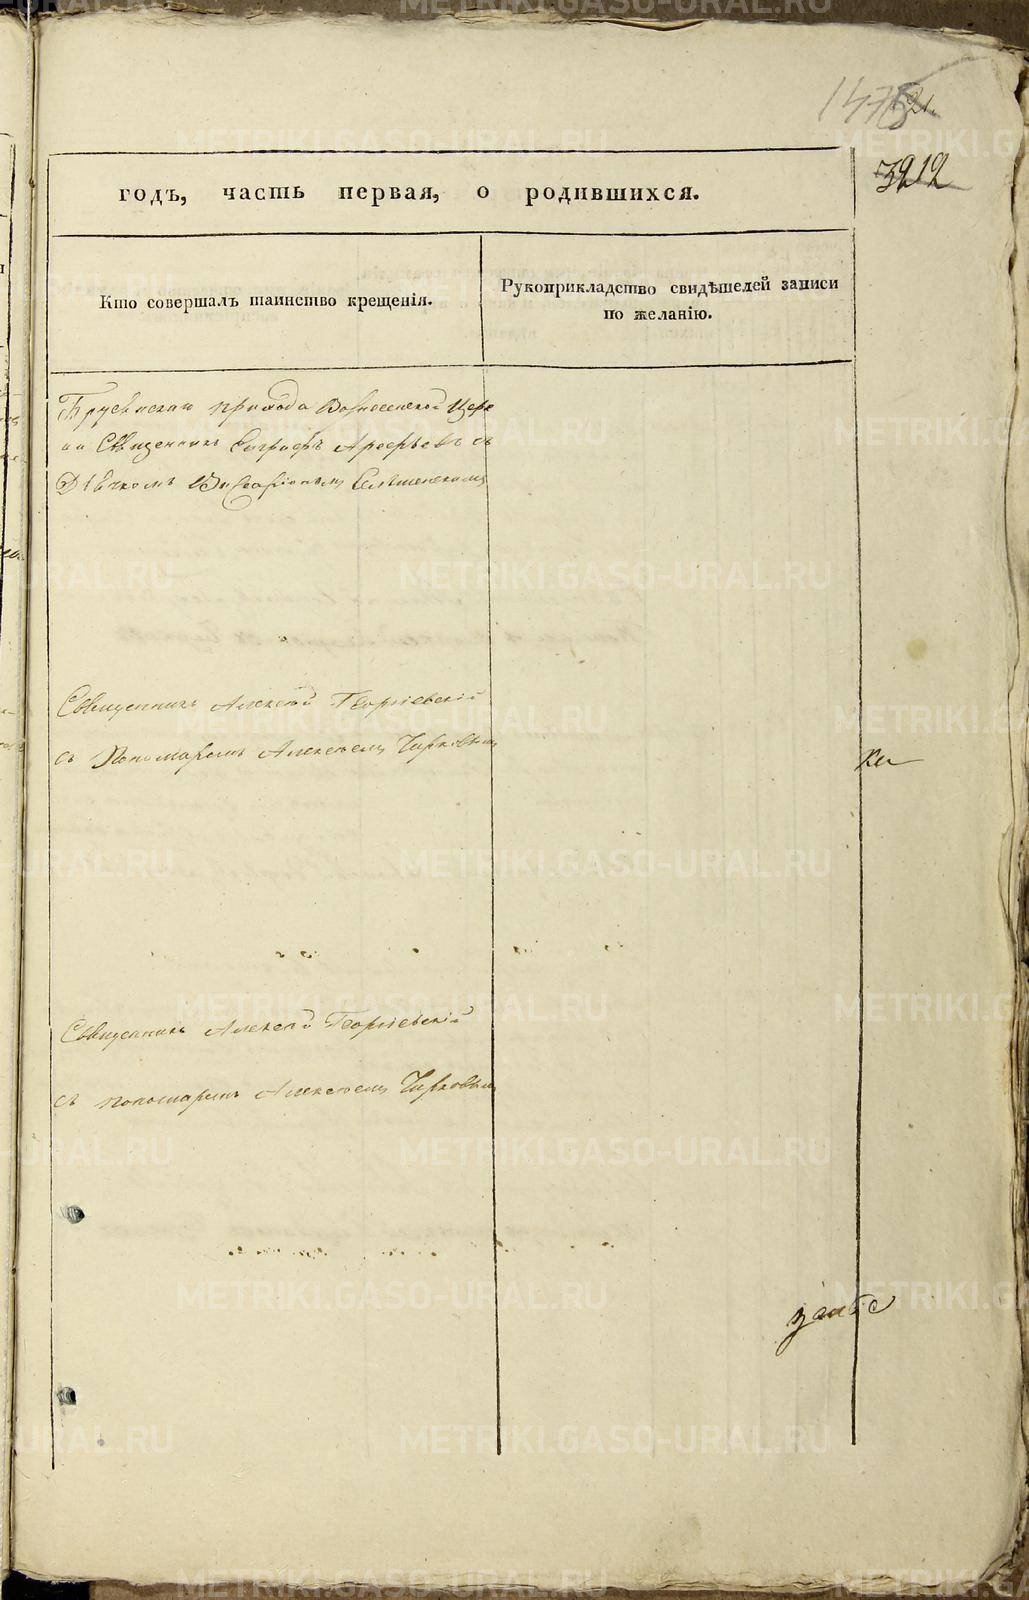 1475
3212
годъ, часть первая, о родившихся.
Кто совершалъ таинство крещенія.
Рукоприкладство свидѣтелей записи
по желанію.
прихода Вознесенской Церк
ви Священникъ Арефьевъ съ
Дьячкомъ
Священникъ Алексѣй Георгіевскій
съ Пономаремъ Алексѣемъ Чирковым
Священникъ Алексѣй Георгіевскій
съ пономаремъ Алексѣемъ Чирковым
METRIKI.GASO-URAL.RU